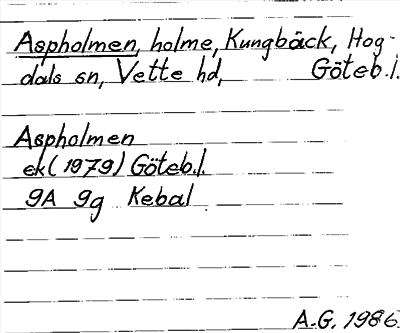 Aspholmen, holme, Kungbäck, Hog-
dals sn, Vette hd, Göteb. l.
Aspholmen
ek (1979) Göteb.l.
9A 9g Kebal
A.G. 1986.